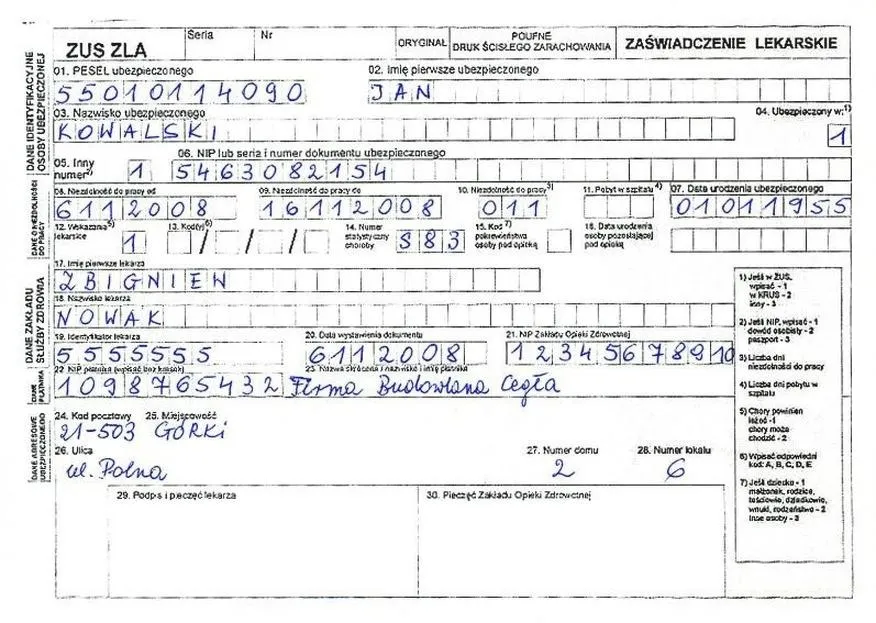 ZUS ZLA Seria Nr ORYGINAŁ POUFNE DRUK ŚCISŁEGO ZARACHOWANIA ZAŚWIADCZENIE LEKARSKIE
DANE IDENTYFIKACYJNE OSOBY UBEZPIECZONEJ
01. PESEL ubezpieczonego 02. Imię pierwsze ubezpieczonego
55010114090 JAN
03. Nazwisko ubezpieczonego 04. Ubezpieczony w: 1)
KOWALSKI 1
05. Inny numer 2) 1 06. NIP lub seria i numer dokumentu ubezpieczonego
5463082154
DANE O NIEZDOLNOŚCI DO PRACY
08. Niezdolność do pracy od 09. Niezdolność do pracy do 10. Niezdolność do pracy 3) 11. Pobyt w szpitalu 4) 07. Data urodzenia ubezpieczonego
6112008 16112008 011 01011955
12. Wskazania 5) lekarskie 1 13. Kod(y) 6) / / / / 14. Numer statystyczny choroby S83 15. Kod 7) pokrewieństwa osoby pod opieką 16. Data urodzenia osoby pozostającej pod opieką
DANE ZAKŁADU SŁUŻBY ZDROWIA
17. Imię pierwsze lekarza
ZBIGNIEW
18. Nazwisko lekarza
NOWAK
19. Identyfikator lekarza 20. Data wystawienia dokumentu 21. NIP Zakładu Opieki Zdrowotnej
5555555 6112008 12345678910
DANE PŁATNIKA
22 NIP płatnika (wpisać bez kresek) 23. Nazwa skrócona / nazwisko i imię płatnika
1098765432 Firma Budowlana Cegła
DANE ADRESOWE UBEZPIECZONEGO
24. Kod pocztowy 25. Miejscowość
21-503 GÓRKI
26. Ulica 27. Numer domu 28. Numer lokalu
ul. Polna 2 6
29. Podpis i pieczęć lekarza 30. Pieczęć Zakładu Opieki Zdrowotnej
1) Jeśli w ZUS,
wpisać - 1
w KRUS - 2
inny - 3
2) Jeśli NIP, wpisać - 1
dowód osobisty - 2
paszport - 3
3) Liczba dni
niezdolności do pracy
4) Liczba dni pobytu w
szpitalu
5) Chory powinien
leżeć -1
chory może
chodzić - 2
6) Wpisać odpowiedni
kod: A, B, C, D, E
7) Jeśli dziecko - 1
małżonek, rodzice,
teściowie, dziadkowie,
wnuki, rodzeństwo - 2
inne osoby - 3